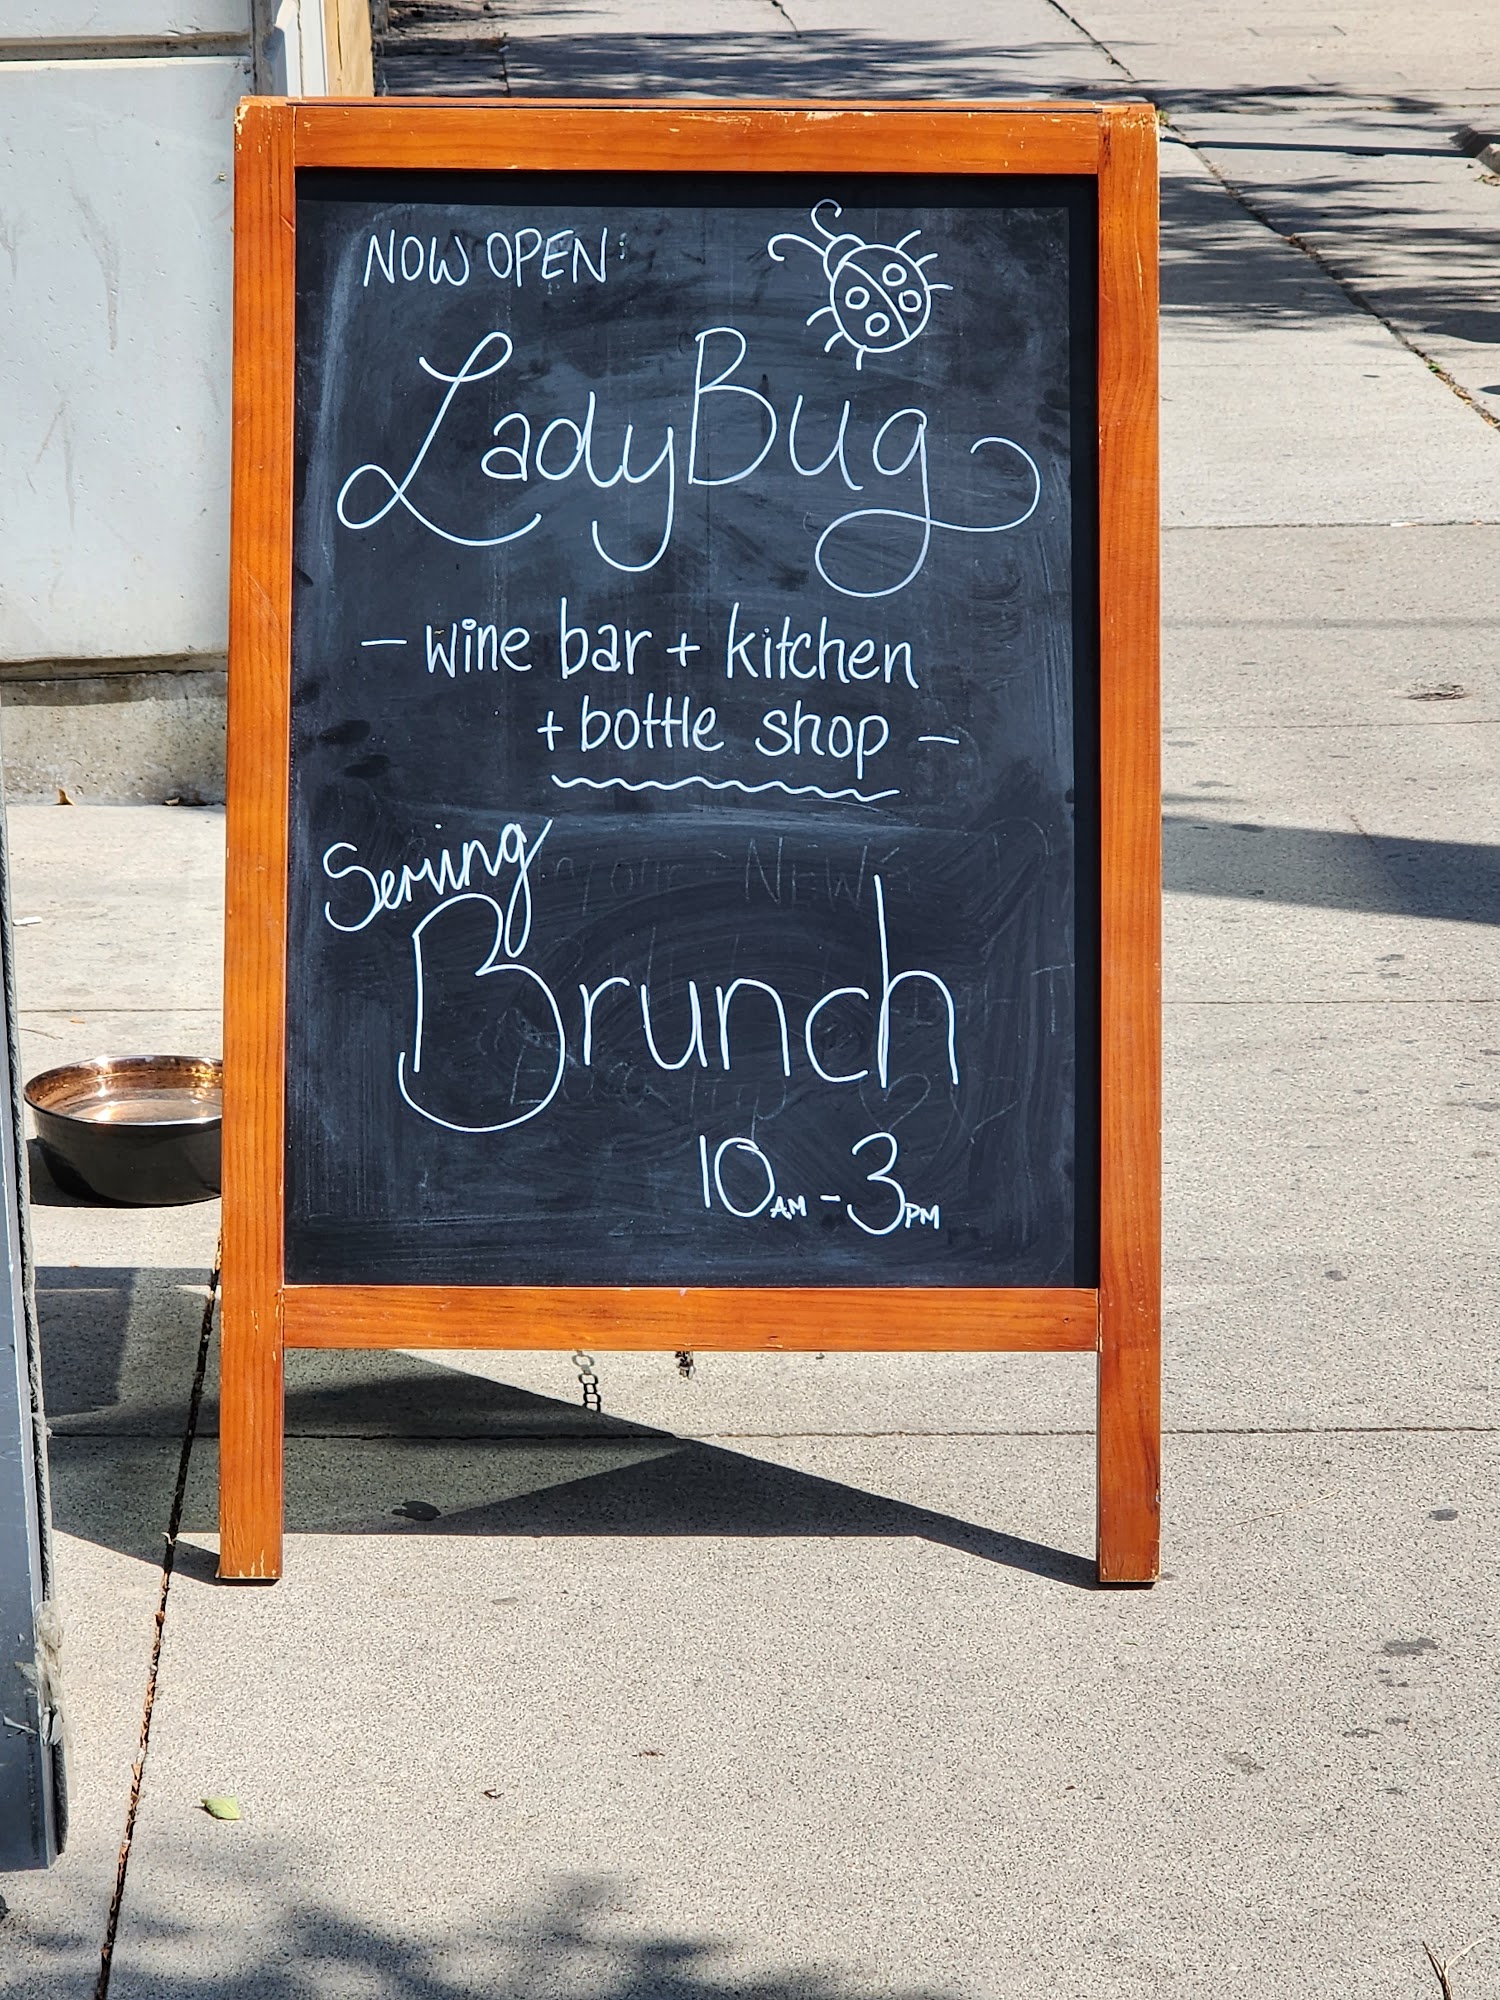 NOW OPEN:
LadyBug
- wine bar + kitchen
+ bottle shop -
Serving
Brunch
10AM - 3PM